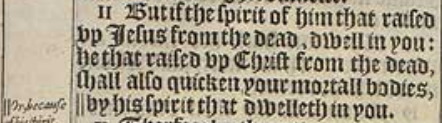 11 But if the spirit of him that raised
vp Jesus from the dead, dwell in you:
he that raised vp Christ from the dead,
shall also quicken your mortall bodies,
||by his spirit that dwelleth in you.
||Or, because
of his spirit